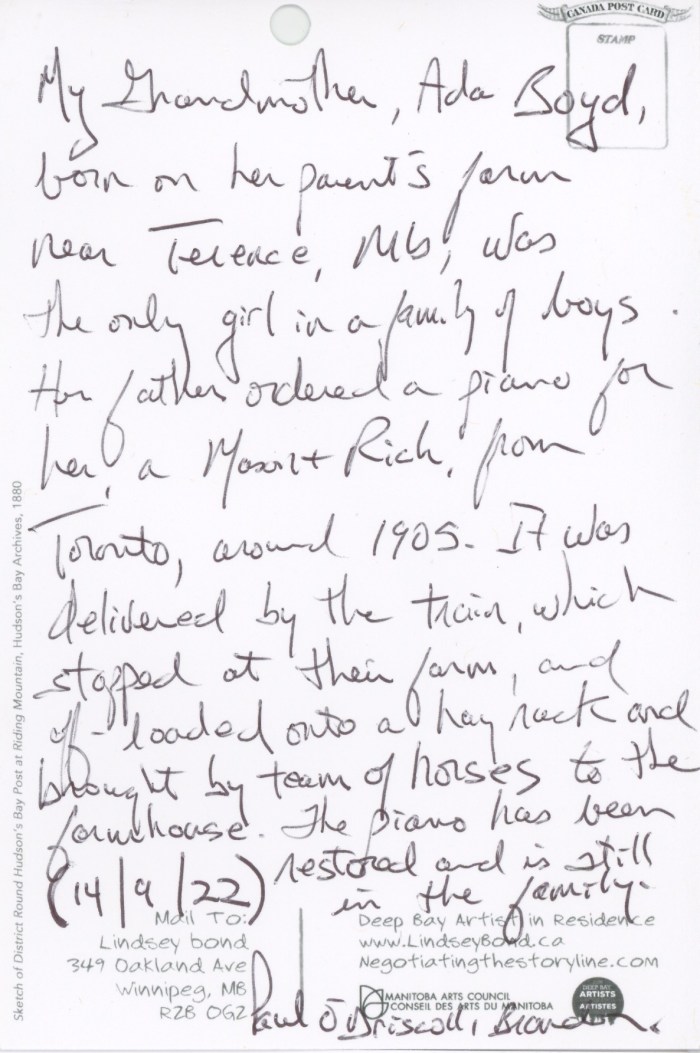 CANADA POST CARD
STAMP
My Grandmother, Ada Boyd,
born on her parent's farm
near Terence, Mb, was
the only girl in a family of boys.
Her father ordered a piano for
her, a Mason + Rich, from
Toronto, around 1905. It was
delivered by the train, which
stopped at their farm, and
off-loaded onto a hay rack and
brought by team of horses to the
farmhouse. The piano has been
restored and is still
in the family.
(14/9/22)
Mail To:
Lindsey bond
349 Oakland Ave
Winnipeg, MB
R2B 0G2
Deep Bay Artist in Residence
www.LindseyBond.ca
Negotiatingthestoryline.com
MANITOBA ARTS COUNCIL
CONSEIL DES ARTS DU MANITOBA
DEEP BAY
ARTISTS
ARTISTES
Paul O'Driscoll, Brandon.
Sketch of District Round Hudson's Bay Post at Riding Mountain, Hudson's Bay Archives, 1880